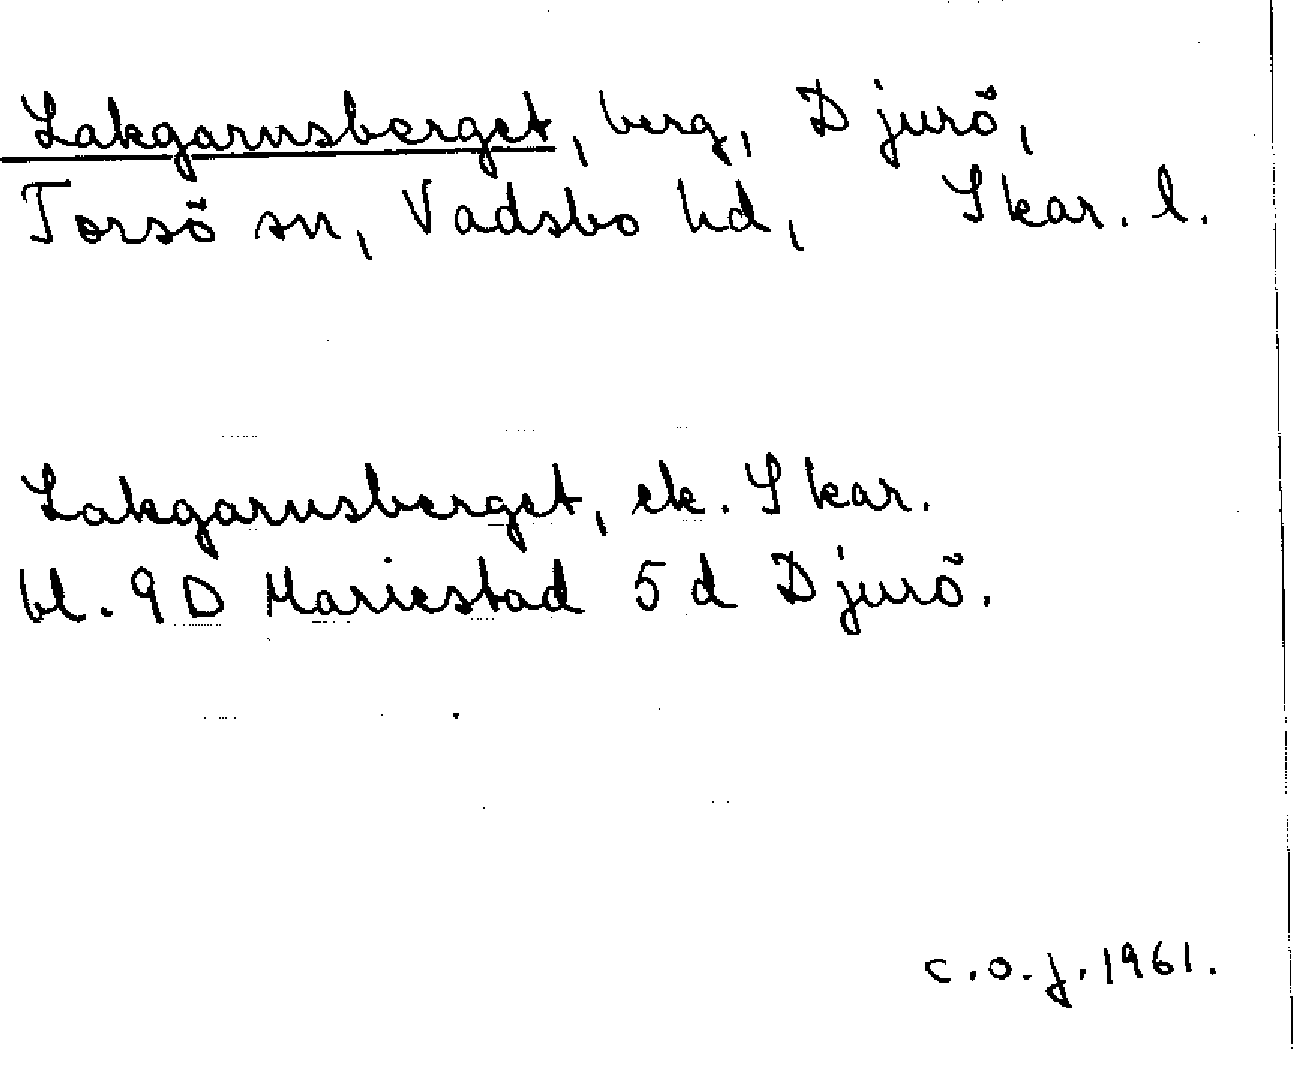 Lakgarnsberget, berg, Djurö,
Torsö sn, Vadsbo hd, Skar. l.
Lakgarnsberget, ek. Skar.
bl. 9D Mariestad 5d Djurö.
C.O.J. 1961.